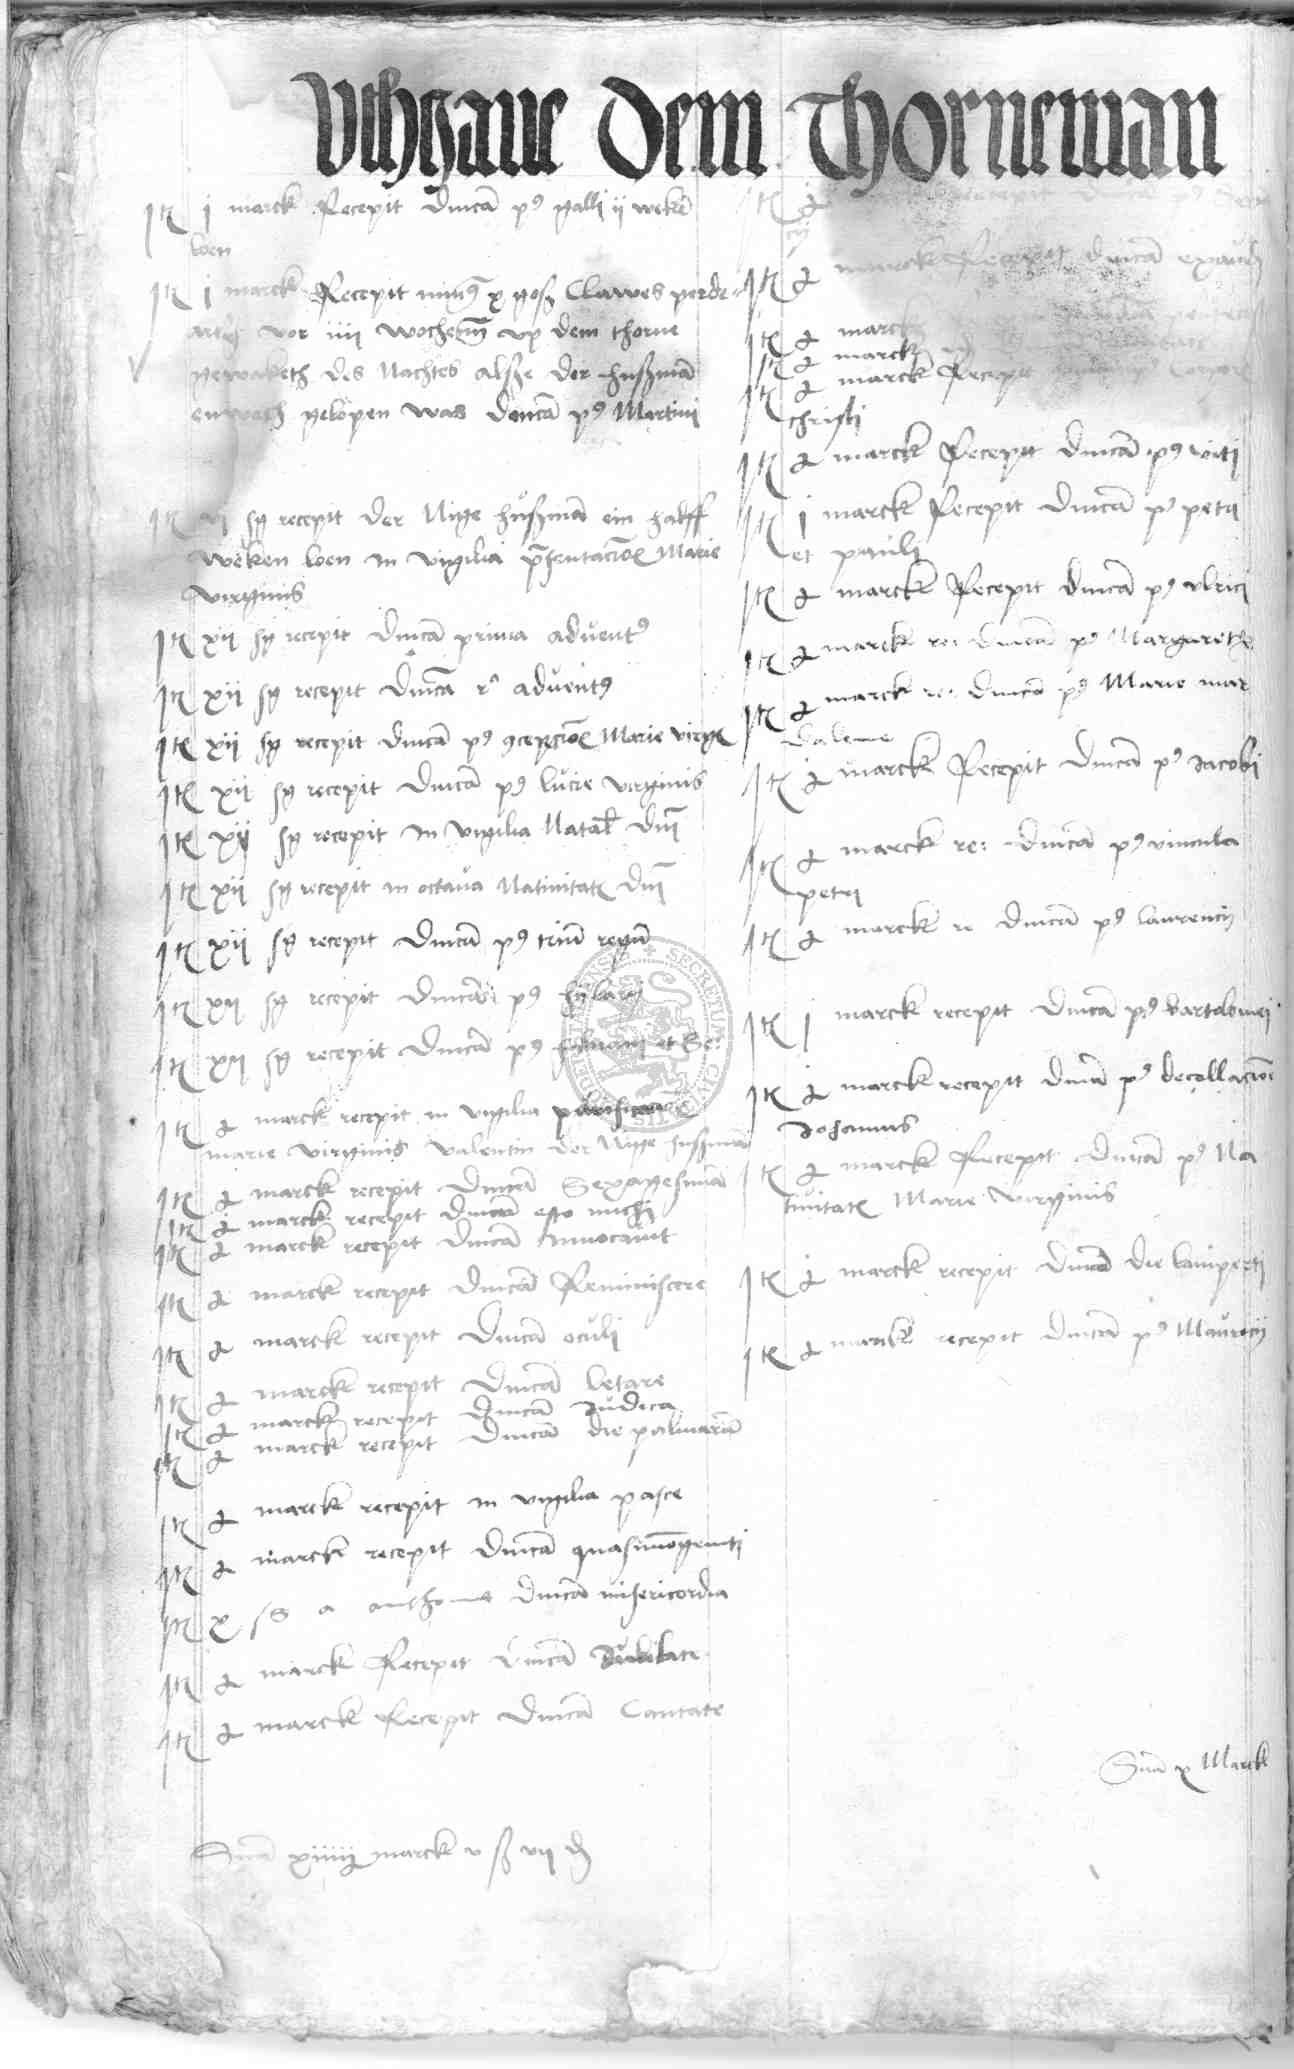 Uthgaue Dem Thorneman
Itꝫ j marck Recepit dnicā pꝰ galli ij wekē
loen
Itꝫ j marck Recepit minꝰ x gosz Clawes perde
vor iiij wochenn vp dem thorne
gewaketh des Nachtes alsze der huszmā
enwech gelopen was dnicā pꝰ Martini
Itꝫ vj sz recepit der Nige huszmā ein halff
weken loen in vigilia pn̄sentacioꝫ Marie
virginis
Itꝫ xij sz recepit dnicā prima aduentꝰ
Itꝫ xij sz recepit dnicā 2ᵃ aduentꝰ
Itꝫ xij sz recepit dnicā pꝰ ꝯcepcioꝫ Marie virgꝫ
Itꝫ xij sz recepit dnicā pꝰ lucie virginis
Itꝫ xij sz recepit in vigilia Natal̄ dnī
Itꝫ xij sz recepit in octaua Natiuitatꝫ dnī
Itꝫ xij sz recepit dnicā pꝰ triū regū
Itꝫ xij sz recepit dnicā pꝰ hylarij
Itꝫ xij sz recepit dnicā pꝰ fabiani et Se:
Itꝫ ½ marck recepit in vigilia purificacioꝫ
marie virginis valentin der Nige huszman
Itꝫ ½ marck recepit dnicā Sexagesima
Itꝫ ½ marck recepit dnicā esto michi
Itꝫ ½ marck recepit dnicā Inuocauit
Itꝫ ½ marck recepit dnicā Reminiscere
Itꝫ ½ marck recepit dnicā oculi
Itꝫ ½ marck recepit dnicā letare
Itꝫ ½ marck recepit dnicā Iudica
Itꝫ ½ marck recepit dnicā die palmarū
Itꝫ ½ marck recepit in vigilia pasce
Itꝫ ½ marck recepit dnicā quasimōgeniti
Itꝫ x sz a dnicā misericordia
Itꝫ ½ marck Recepit dnicā Iubilate
Itꝫ ½ marck Recepit dnicā Cantate
Sūma xiiij½ marck v sz vij d
Itꝫ ½ pꝰ
Itꝫ ½ marck Recepit dnicā exaudi
Itꝫ ½ marck
Itꝫ ½ marck
Itꝫ ½ marck Recepit Corporꝫ
christi
Itꝫ ½ marck Recepit dnicā pꝰ viti
Itꝫ j marck Recepit dnicā pꝰ petri
et pauli
Itꝫ ½ marck Recepit dnicā pꝰ vlrici
Itꝫ ½ marck re: dnicā pꝰ Margarethe
Itꝫ ½ marck re: dnicā pꝰ Marie mag
dalene
Itꝫ ½ marck Recepit dnicā pꝰ Iacobi
Itꝫ ½ marck re: dnicā pꝰ vincula
petri
Itꝫ ½ marck re dnicā pꝰ laurencij
Itꝫ j marck recepit dnicā pꝰ bartolomei
Itꝫ ½ marck recepit dnicā pꝰ decollacioē
Iohannis
Itꝫ ½ marck Recepit dnicā pꝰ Na
tiuitatꝫ Marie virginis
Itꝫ ½ marck recepit dnicā die lamperti
Itꝫ ½ marck recepit dnicā pꝰ Mauricij
Sūma x Marck